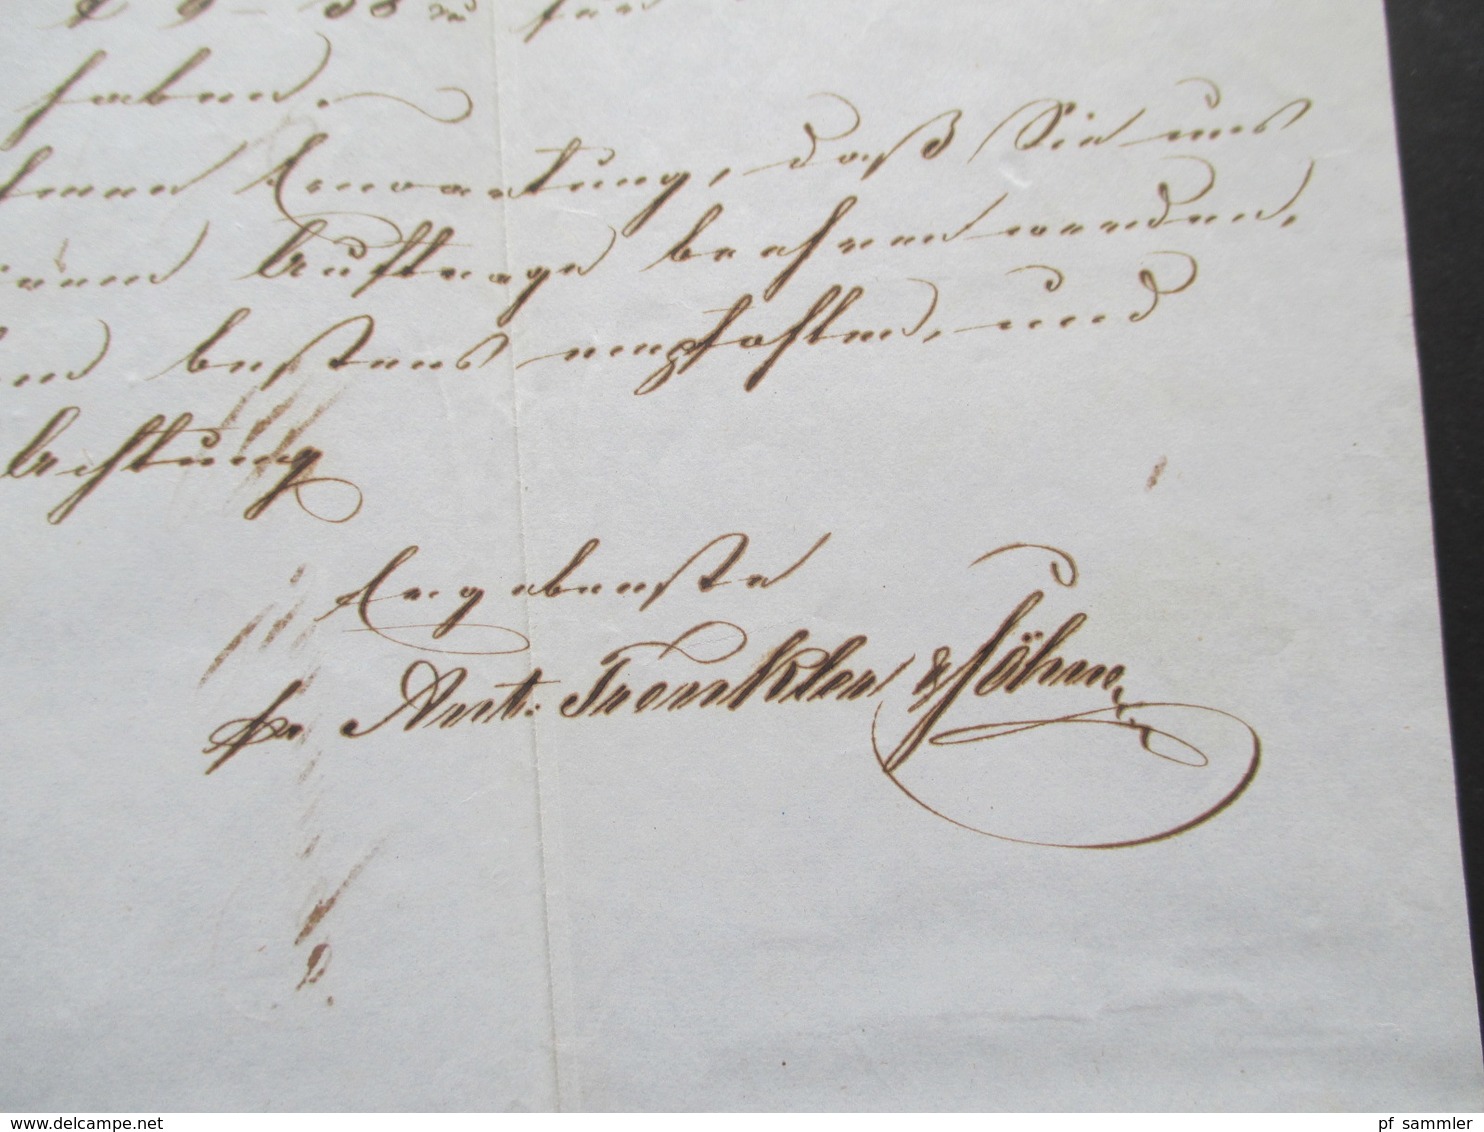 haben.
Erwartung, daß Sie uns
Auftrage beehren werden,
bestens empfohlen, und
Achtung
Ergebenste
pr Ant: Trenkler & Söhne
www.delcampe.net
pf_sammler